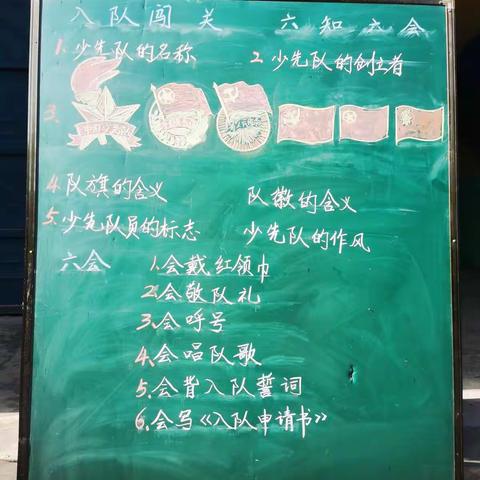 入队闯关 六知六会
1.少先队的名称 2.少先队的创立者
3.
4.队旗的含义 队徽的含义
5.少先队员的标志 少先队的作风
六会 1.会戴红领巾
2.会敬队礼
3.会呼号
4.会唱队歌
5.会背入队誓词
6.会写《入队申请书》